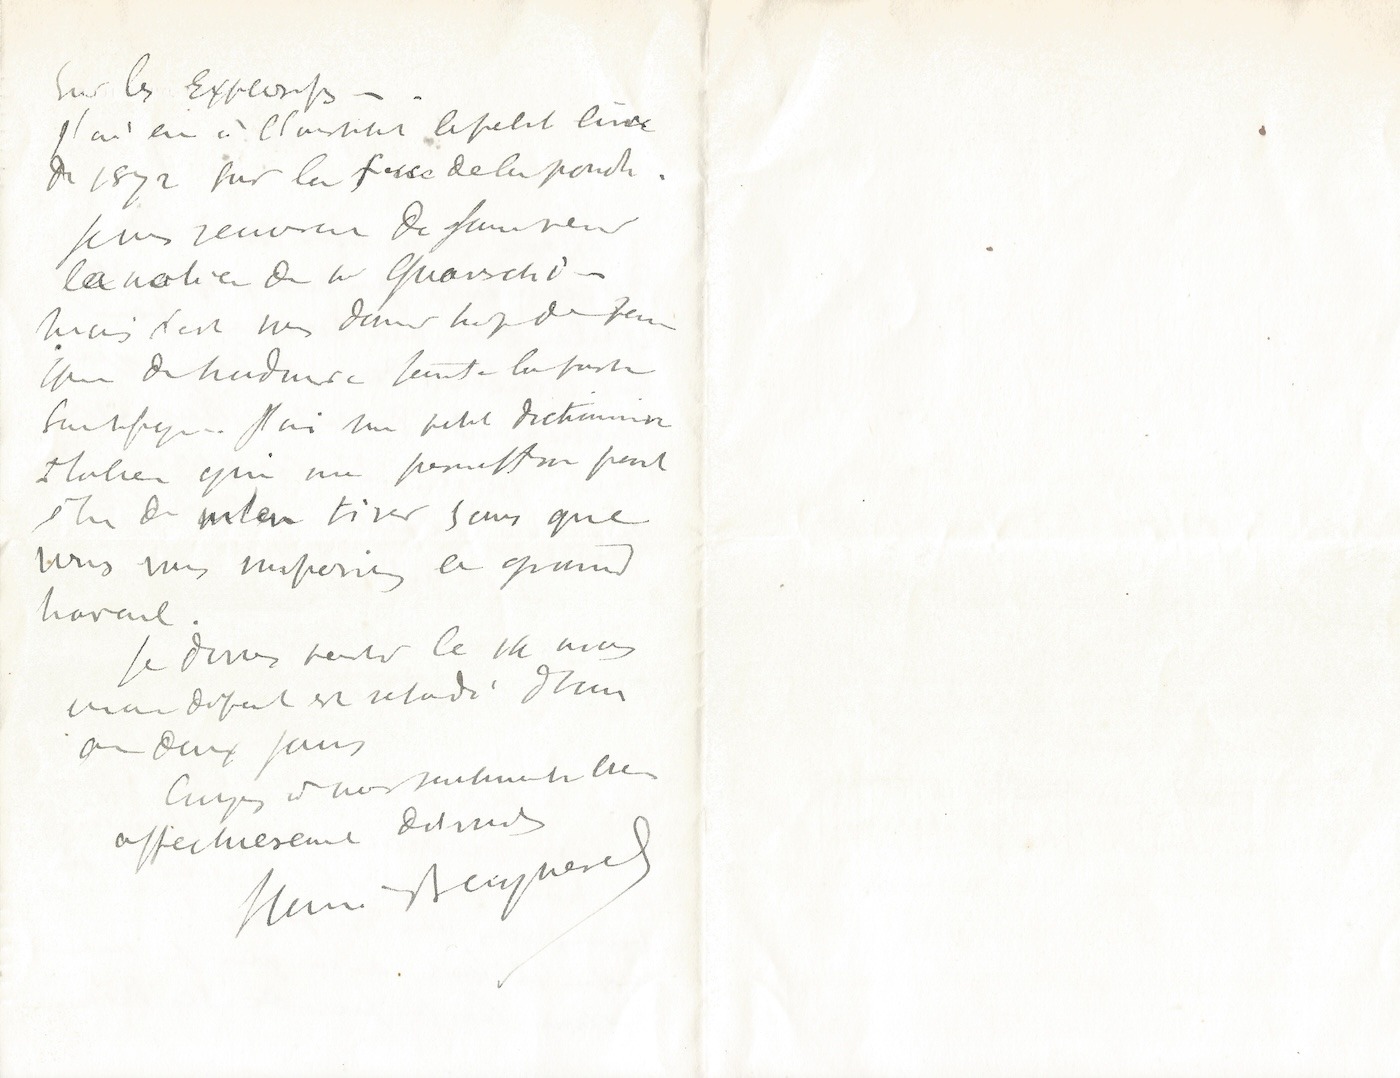 Sur les Explosifs —.
J'ai eu à l'Institut le petit livre
de 1872 sur la force de la poudre.
Je vous remercie de
la notice de Mr Guareschi —
mais c'est vous donner trop de peine
que de traduire toute la partie
Scientifique. J'ai un petit dictionnaire
Italien qui me permettra peut
être de m'en tirer sans que
vous vous imposiez ce grand
travail.
Je devais partir le mais
mon départ est retardé d'un
ou deux jours
Croyez à mes sentiments bien
affectueusement dévoués
Henri Becquerel